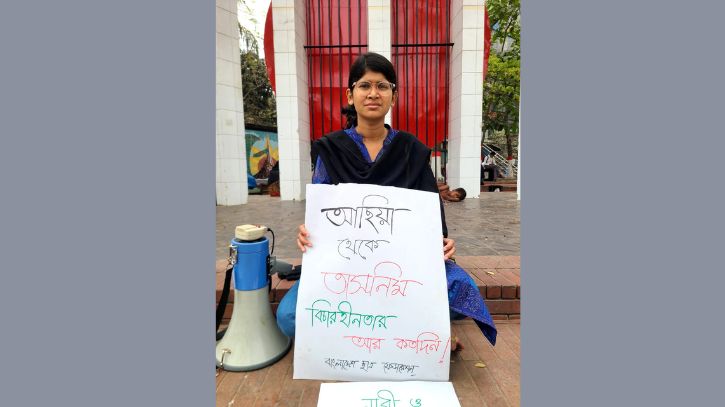 আছিয়া
থেকে
তাসনিম
বিচারহীনতার
আর কতদিন!
বাংলাদেশ ছাত্র ফেডারেশন
নারী ও